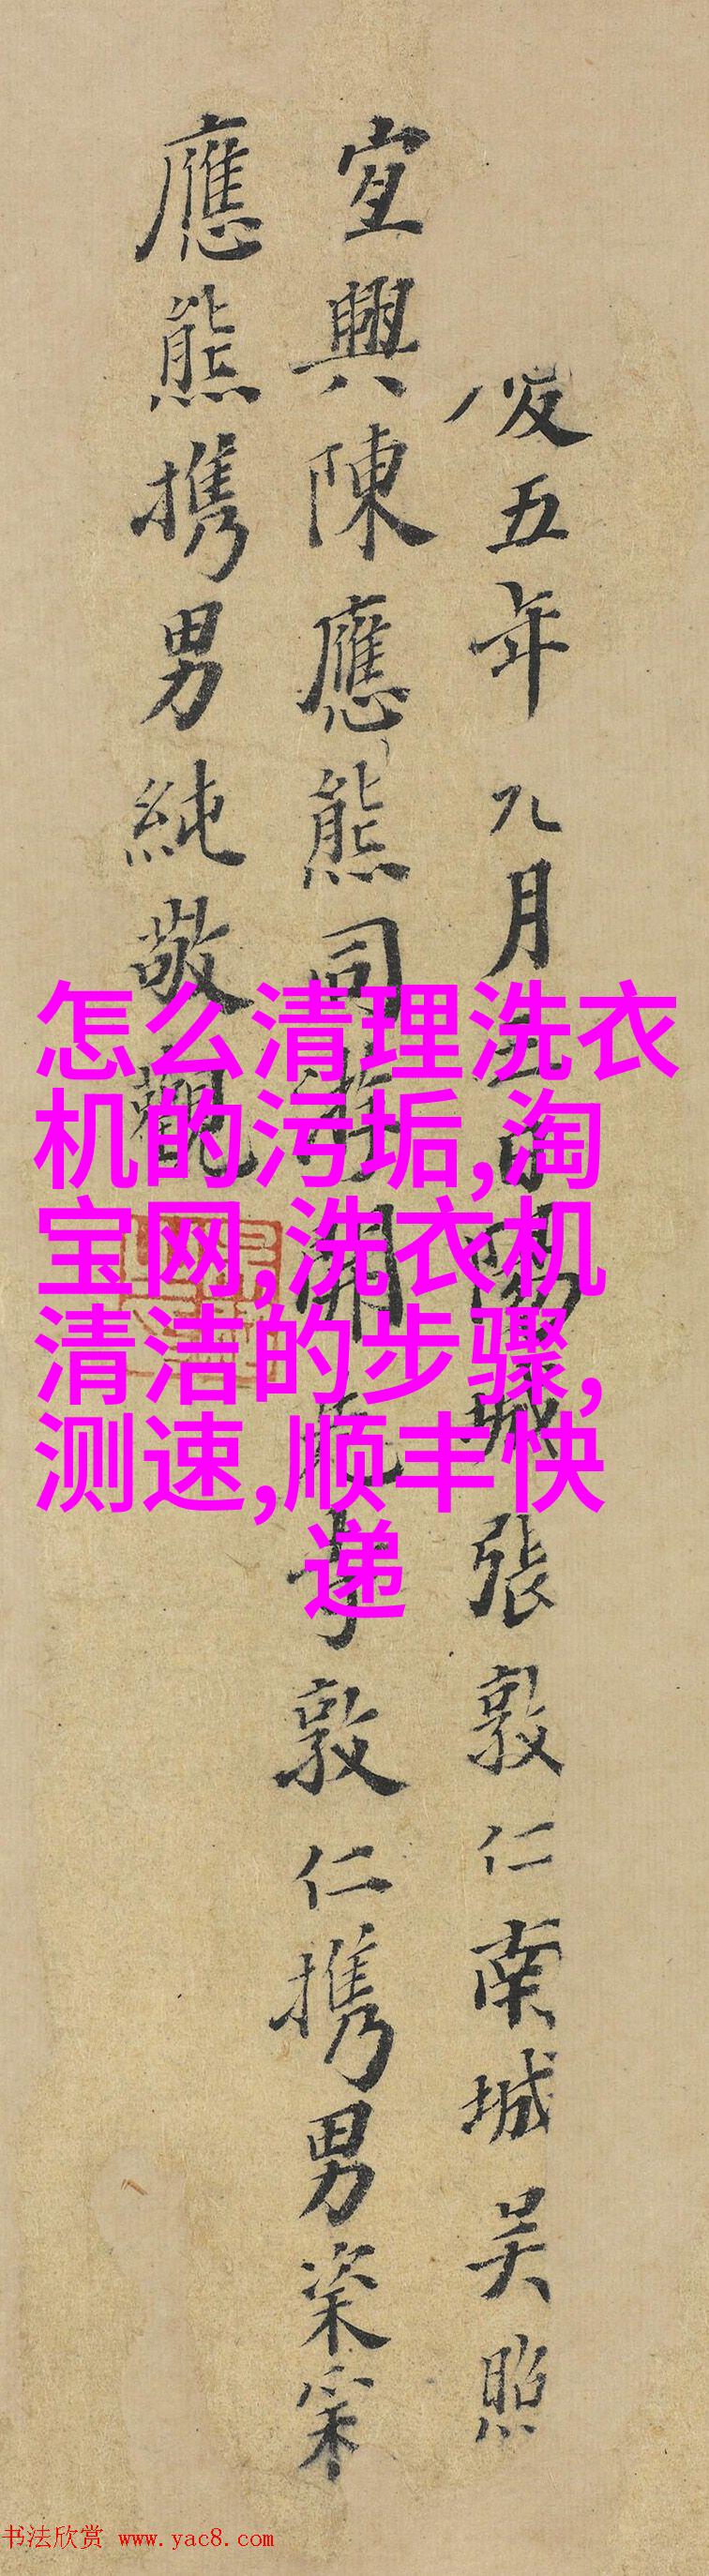 怎么清理洗衣
机的污垢,淘
宝网,洗衣机
清洁的步骤,
测速,顺丰快
递
五年九月 張敦仁南城吴照
宜興陳應熊同 開 敦仁携男
應熊携男純敬觀
书法欣赏 www.yac8.com